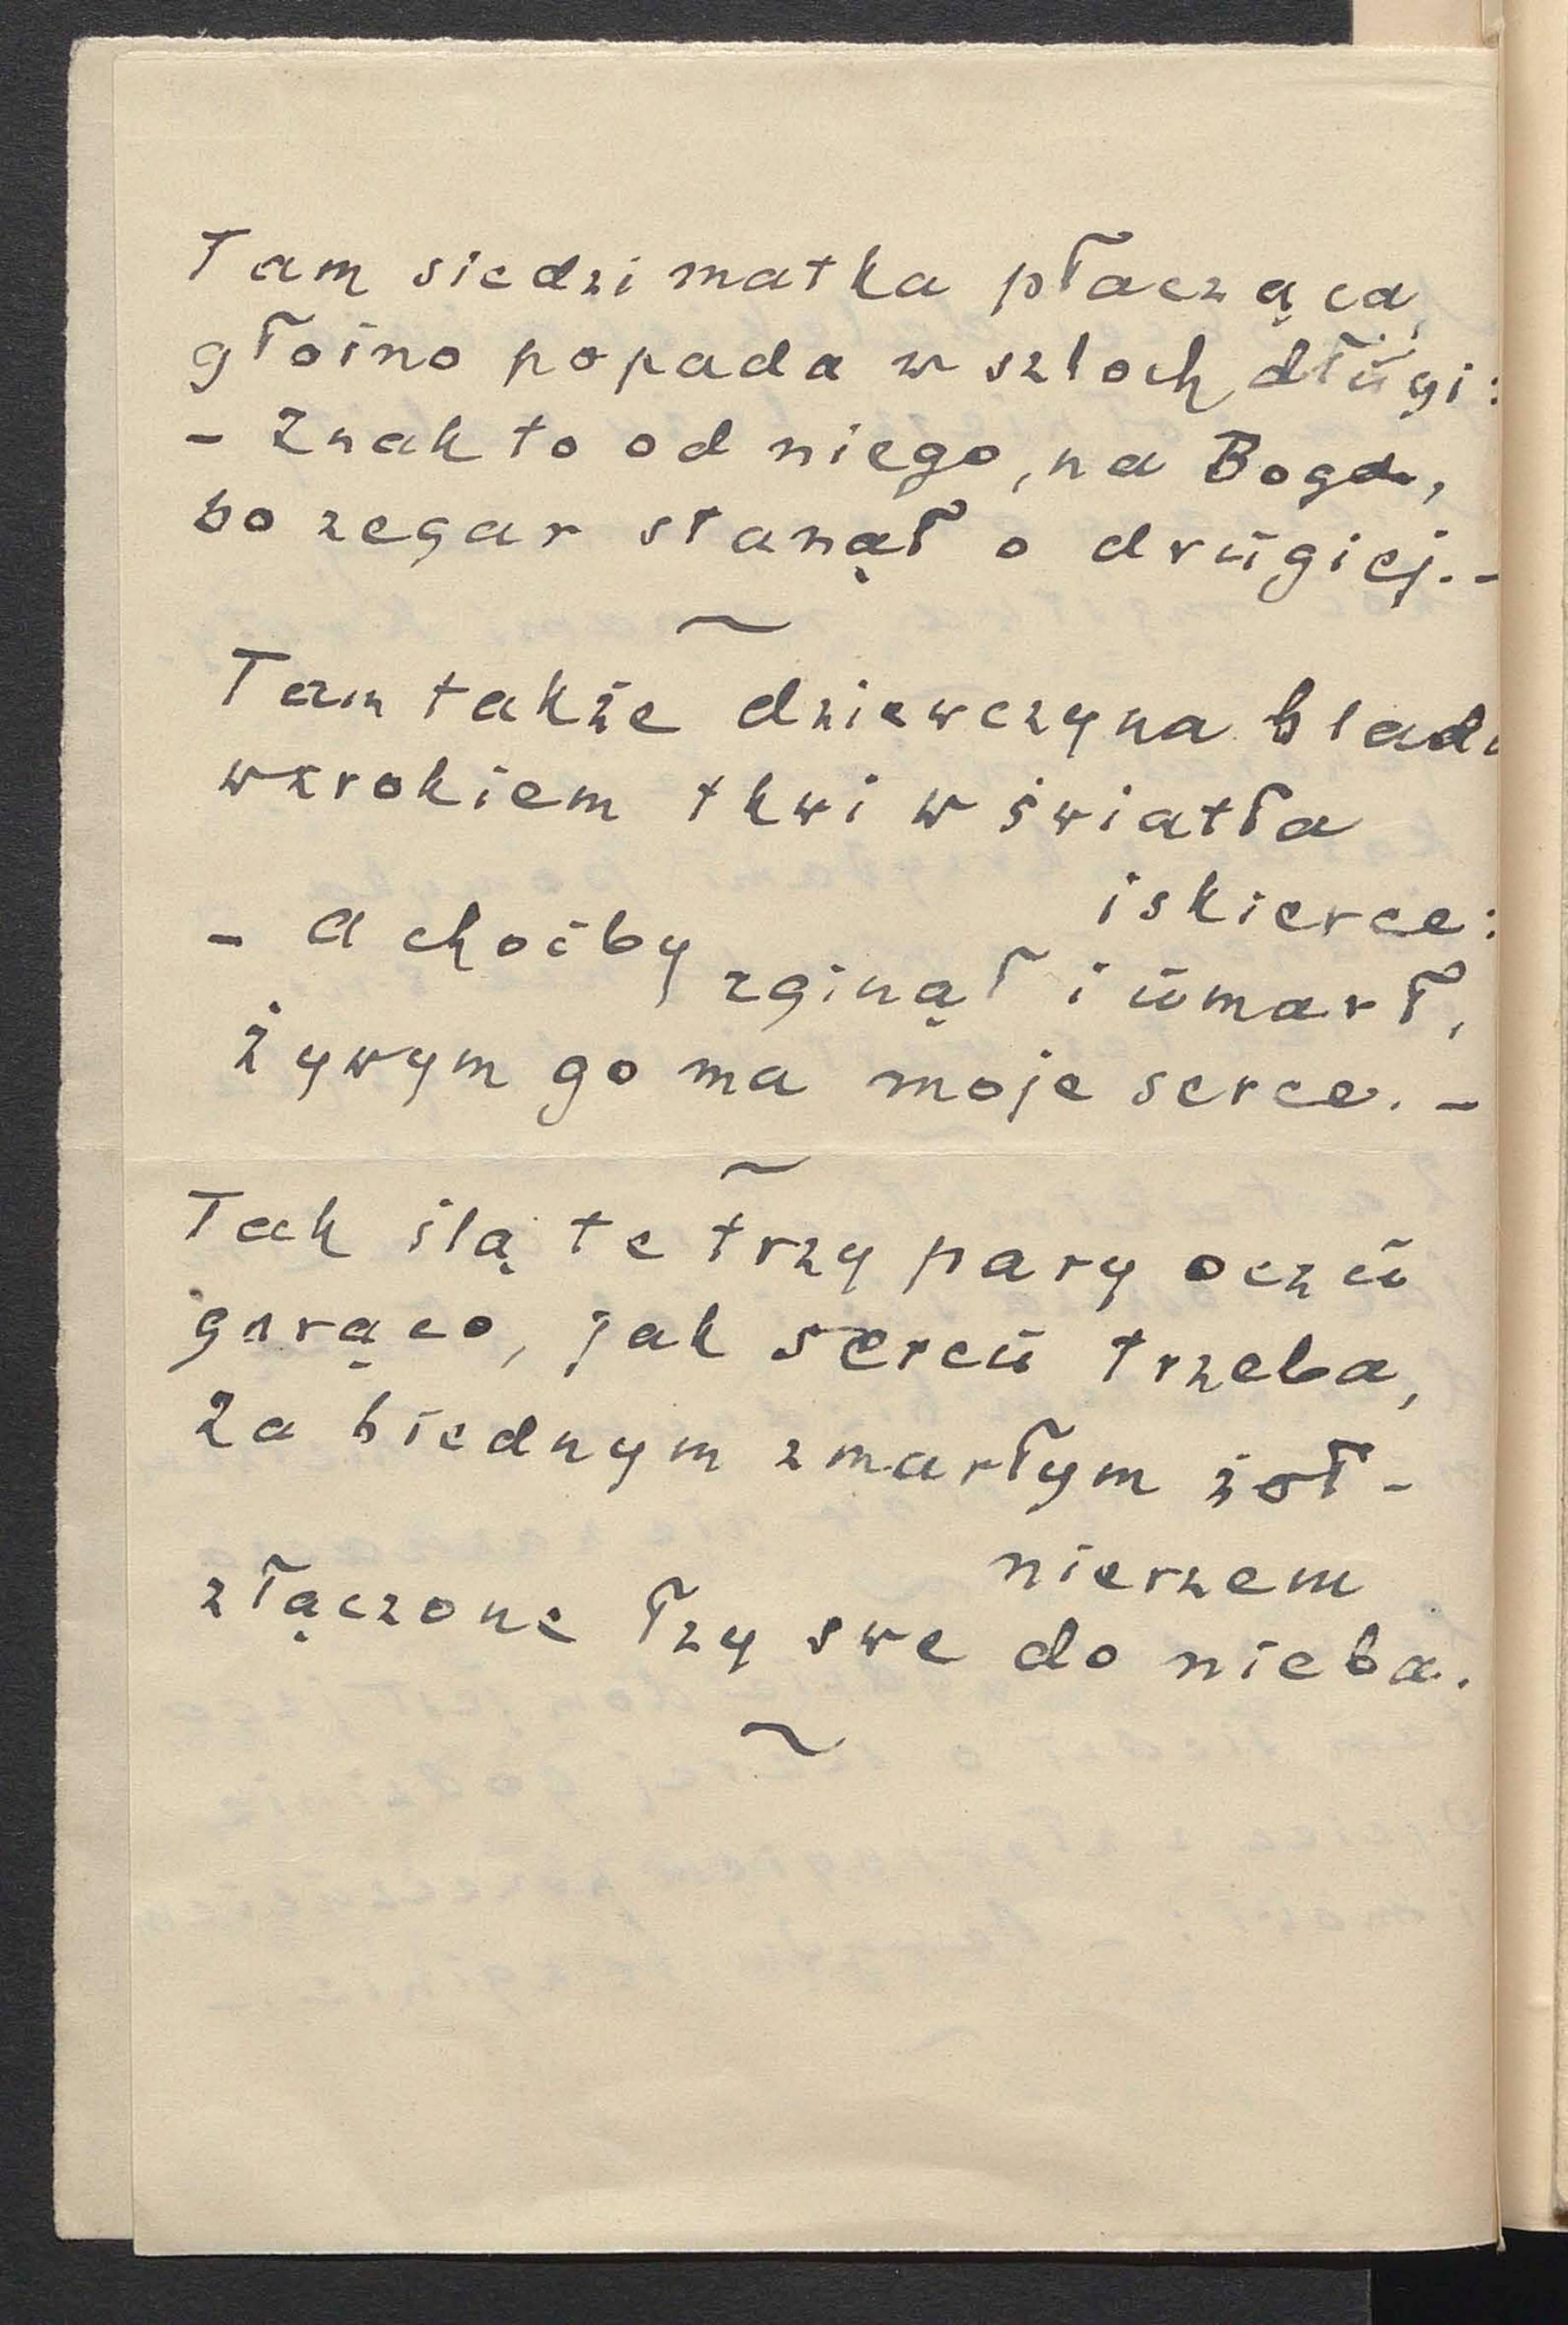 Tam siedzi matka płacząca,
głośno popada w szloch dłūgi:
- Znak to od niego, na Boga,
bo zegar stanął o drūgiej. -
~
Tam także dziewczyna blada
wzrokiem tkwi w światła
iskierce:
- A choćby zginął i ūmarł,
żywym go ma moje serce. -
~
Tak ślą te trzy pary oczū
gorąco, jak sercū trzeba,
Za biednym zmarłym żoł-
nierzem
złączone łzy swe do nieba.
~